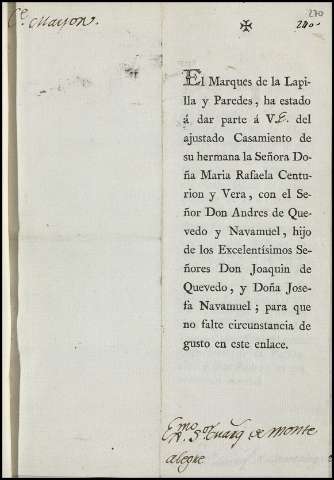 Cº. Mayor.
270
✠
240.
El Marques de la Lapi-
lla y Paredes, ha estado
á dar parte á V.E. del
ajustado Casamiento de
su hermana la Señora Do-
ña Maria Rafaela Centu-
rion y Vera, con el Se-
ñor Don Andres de Que-
vedo y Navamuel, hijo
de los Excelentísimos Se-
ñores Don Joaquin de
Quevedo, y Doña Jose-
fa Navamuel; para que
no falte circunstancia de
gusto en este enlace.
Exmo. Sor. Marq de monte
alegre